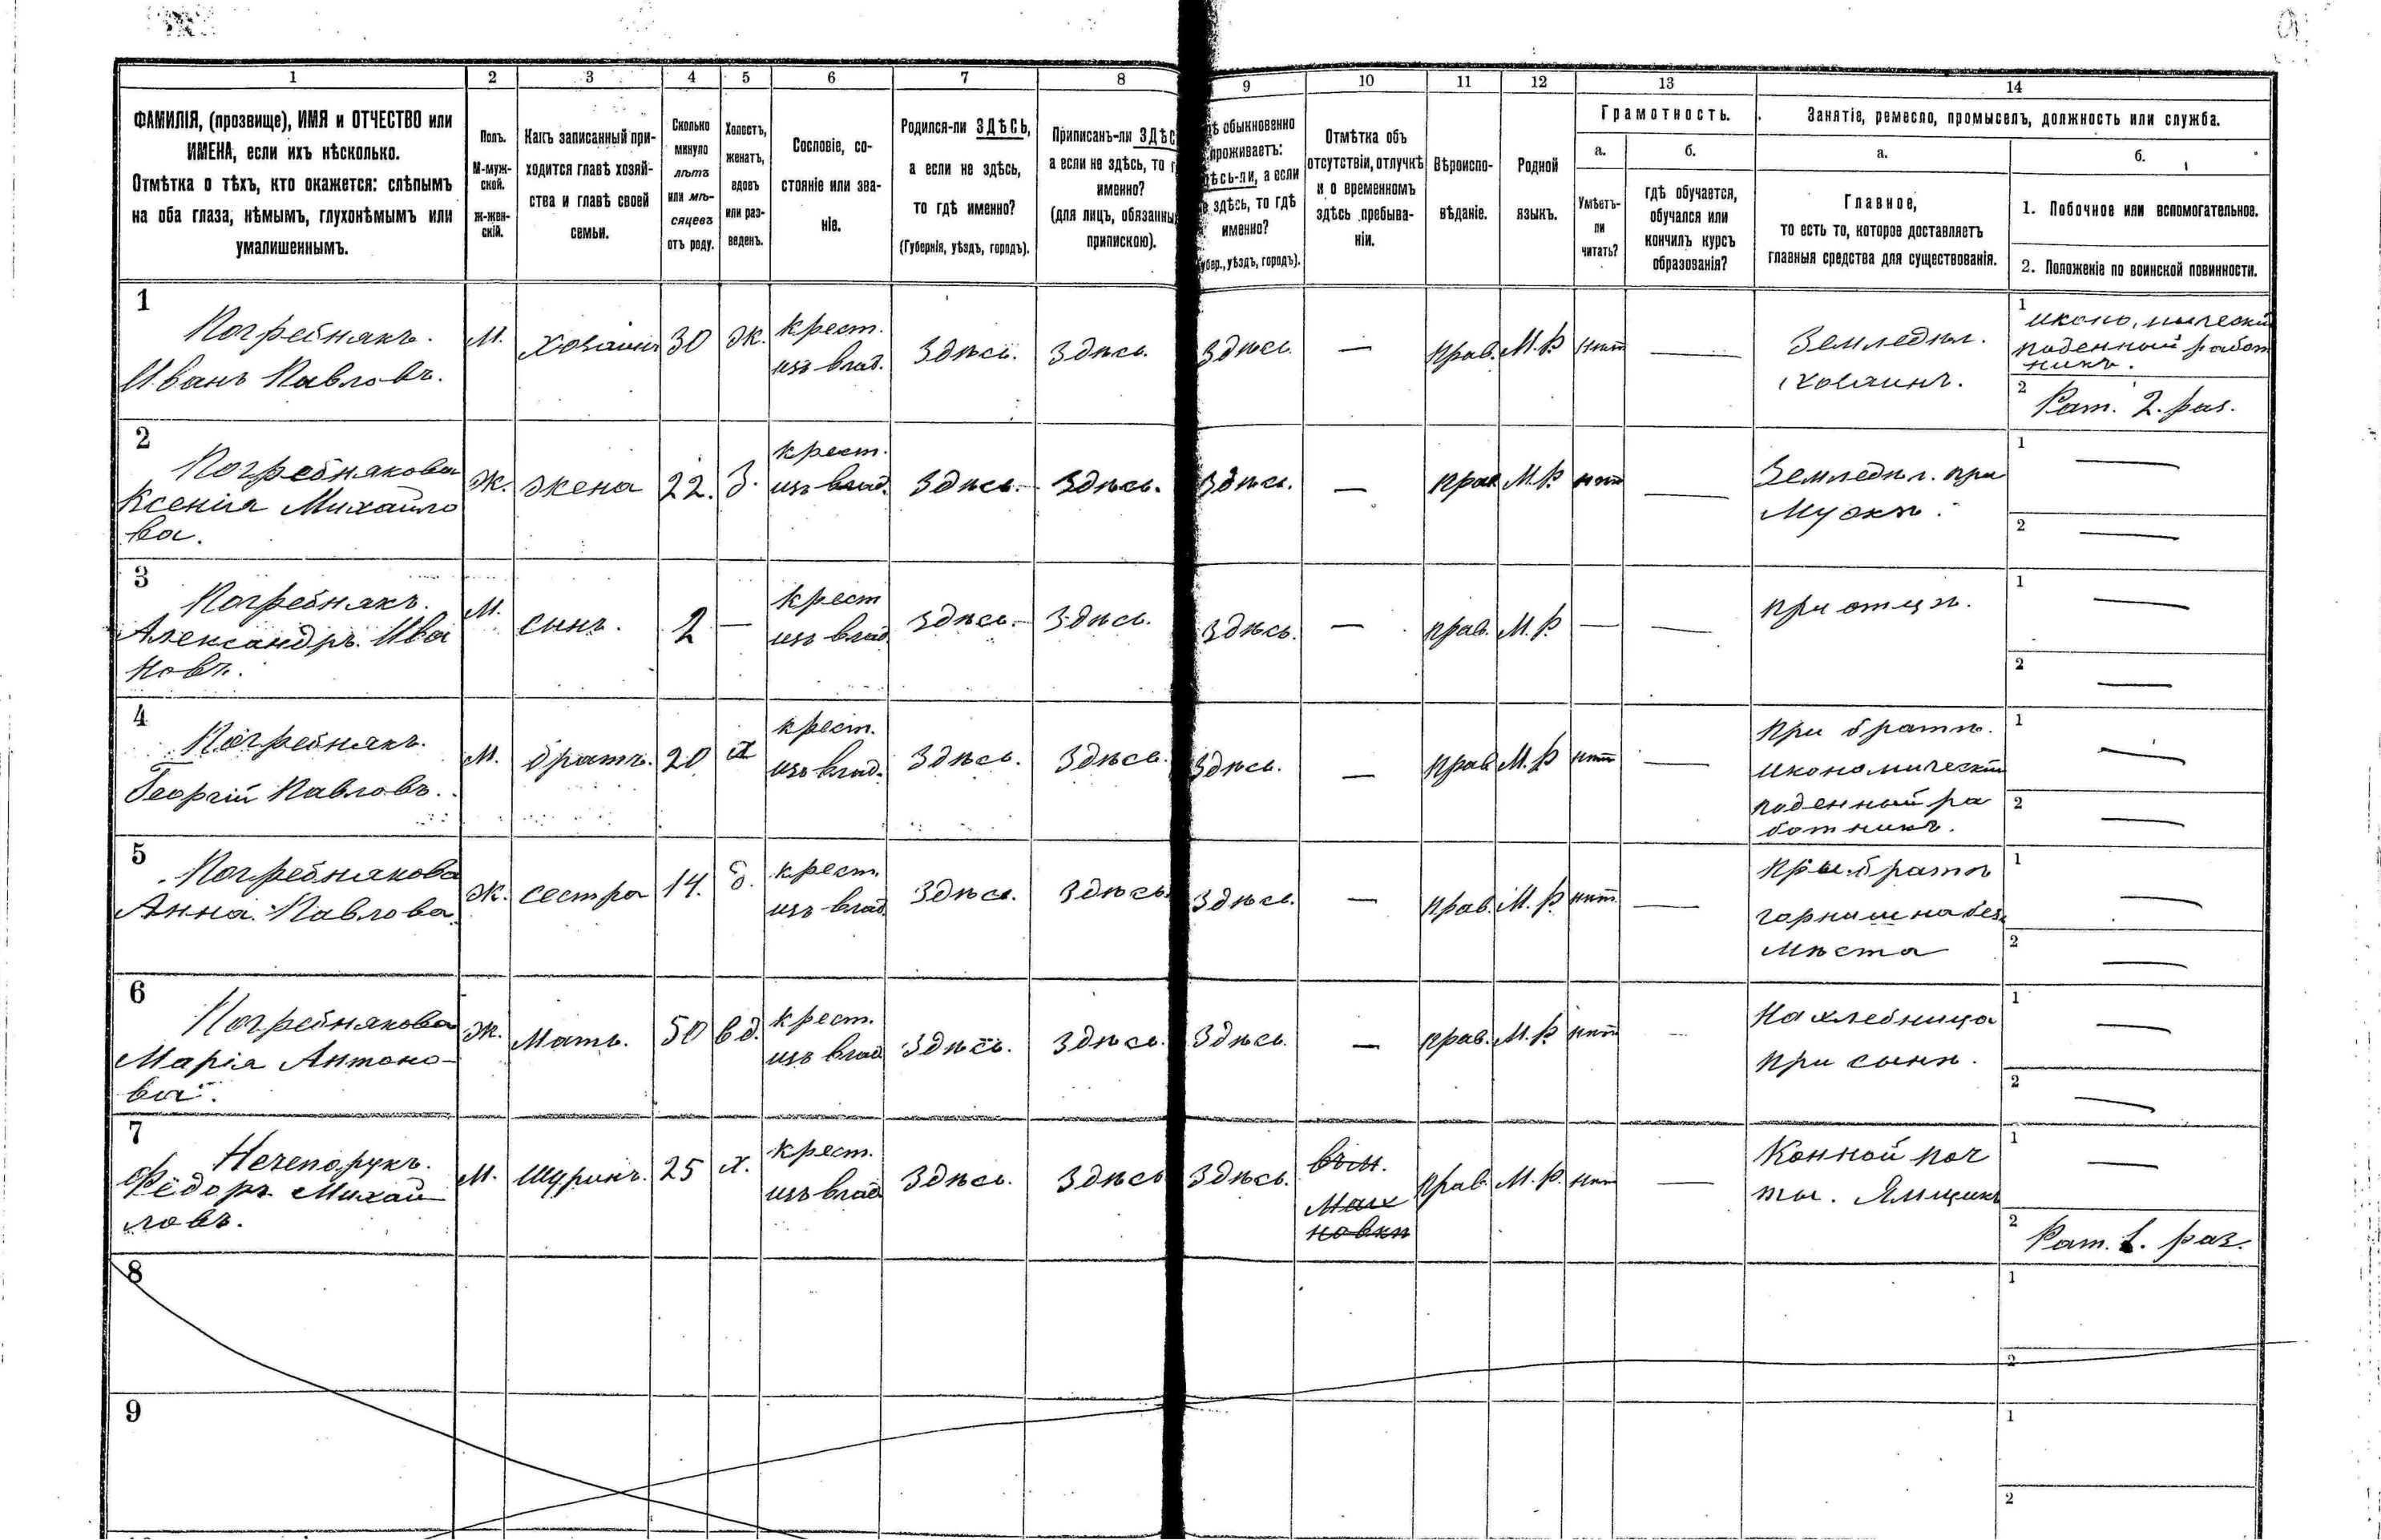 1 2 3 4 5 6 7 8 9 10 11 12 13 14
ФАМИЛІЯ, (прозвище), ИМЯ и ОТЧЕСТВО или
ИМЕНА, если ихъ нѣсколько.
Отмѣтка о тѣхъ, кто окажется: слѣпымъ
на оба глаза, нѣмымъ, глухонѣмымъ или
умалишеннымъ.
Полъ.
М-муж-
ской.
Ж-жен-
скій.
Какъ записанный при-
ходится главѣ хозяй-
ства и главѣ своей
семьи.
Сколько
минуло
лѣтъ
или мѣ-
сяцевъ
отъ роду.
Холостъ,
женатъ,
вдовъ
или раз-
веденъ.
Сословіе, со-
стояніе или зва-
ніе.
Родился-ли ЗДѢСЬ,
а если не здѣсь,
то гдѣ именно?
(Губернія, уѣздъ, городъ).
Приписанъ-ли ЗДѢС
а если не здѣсь, то г
именно?
(для лицъ, обязанны
припискою).
ѣ обыкновенно
проживаетъ:
ѣсь-ли, а если
е здѣсь, то гдѣ
именно?
убер., уѣздъ, городъ).
Отмѣтка объ
отсутствіи, отлучкѣ
и о временномъ
здѣсь пребыва-
ніи.
Вѣроиспо-
вѣданіе.
Родной
языкъ.
Грамотность.
а.
Умѣетъ-
ли
читать?
б.
гдѣ обучается,
обучался или
кончилъ курсъ
образованія?
Занятіе, ремесло, промыселъ, должность или служба.
а.
Главное,
то есть то, которое доставляетъ
главныя средства для существованія.
б.
1. Побочное или вспомогательное.
2. Положеніе по воинской повинности.
1
Погребнякъ.
Иванъ Павловъ.
М.
хозяинъ
30
ж.
крест.
изъ влад.
Здѣсь.
Здѣсь.
Здѣсь.
—
прав.
М.Р.
нѣтъ
—
Земледѣл.
хозяинъ.
1
икономическій
поденный работ
никъ.
2
Рат. 2. раз.
2
Погребнякова
Ксенія Михайло
ва.
ж.
жена
22.
З.
крест.
изъ влад.
Здѣсь.
Здѣсь.
Здѣсь.
—
прав
М.Р.
нѣтъ
—
Земледѣл. при
Мужѣ.
1 —
2 —
3
Погребнякъ.
Александръ Ива
новъ.
М.
сынъ.
2
—
крест
изъ влад
Здѣсь.
Здѣсь.
Здѣсь.
—
прав.
М.Р.
—
—
при отцѣ.
1 —
2 —
4
Погребнякъ.
Георгій Павловъ.
М.
братъ.
20
х
крест.
изъ влад.
Здѣсь.
Здѣсь.
Здѣсь.
—
прав
М.Р
нѣтъ
—
при братѣ.
икономическій
поденный ра
ботникъ.
1 —
2 —
5
Погребнякова
Анна Павлова.
ж.
сестра
14.
д.
крест.
изъ влад
Здѣсь.
Здѣсь
Здѣсь.
—
прав.
М.Р.
нѣтъ
—
при братѣ
горнишна без
мѣста
1 —
2 —
6
Погребнякова
Марія Антоно-
ва.
ж.
Мать.
50
вд.
крест.
изъ влад
Здѣсь.
Здѣсь.
Здѣсь.
—
прав.
М.Р.
нѣтъ
—
Нахлебница
при сынѣ.
1 —
2 —
7
Нечепорукъ.
Федоръ Михай
ловъ.
М.
шуринъ.
25
х.
крест.
изъ влад
Здѣсь.
Здѣсь
Здѣсь.
въ м.
Мах
новкѣ
прав.
М.Р.
нѣт
—
Конной поч
ты. Ямщикъ
1 —
2
Рат. 1. раз.
8
1
2
9
1
2